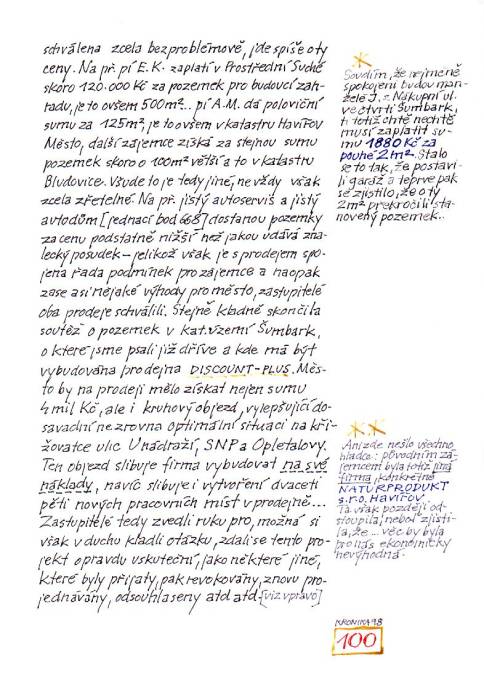 schválena zcela bezproblémově, jde spíše o ty
ceny. Na př. pí E.K. zaplatí v Prostřední Suché
skoro 120.000 Kč za pozemek pro budoucí zah-
radu, je to ovšem 500m²... pí A.M. dá poloviční
sumu za 125m², je to ovšem v katastru Havířov
Město, další zájemce získá za stejnou sumu
pozemek skoro o 100m² větší a to v katastru
Bludovice. Všude to je tedy jiné, ne vždy však
zcela zřetelné. Na př. jistý autoservis a jistý
autodům [jednací bod 668] dostanou pozemky
za cenu podstatně nižší než jakou udává zna-
lecký posudek - jelikož však je s prodejem spo-
jena řada podmínek pro zájemce a naopak
zase asi nějaké výhody pro město, zastupitelé
oba prodeje schválili. Stejně kladně skončila
soutěž o pozemek v kat. území Šumbark,
o které jsme psali již dříve a kde má být
vybudována prodejna DISCOUNT-PLUS. Měs-
to by na prodeji mělo získat nejen sumu
4 mil Kč, ale i kruhový objezd, vylepšující do-
savadní ne zrovna optimální situaci na kři-
žovatce ulic U nádraží, SNP a Opletalovy.
Ten objezd slibuje firma vybudovat na své
náklady, navíc slibuje i vytvoření dvaceti
pěti nových pracovních míst v prodejně...
Zastupitelé tedy zvedli ruku pro, možná si
však v duchu kladli otázku, zdali se tento pro-
jekt opravdu uskuteční, jako některé jiné,
které byly přijaty, pak revokovány, znovu pro-
jednávány, odsouhlaseny atd atd. [viz vpravo]
Soudím, že nejméně
spokojeni budou man-
želé J. z Nákupní ul.
ve čtvrti Šumbark,
ti totiž chtě nechtě
musí zaplatit su-
mu 1880 Kč za
pouhé 2m². Stalo
se to tak, že postavi-
li garáž a teprve pak
se zjistilo, že o ty
2m² překročili sta-
novený pozemek..
Ani zde nešlo všechno
hladce: původním zá-
jemcem byla totiž jiná
firma, konkrétně
NATURPRODUKT
s.r.o. Havířov.
Ta však později od-
stoupila, neboť zjisti-
la, že ... věc by byla
pro nás ekonomicky
nevýhodná.
KRONIKA 98
100